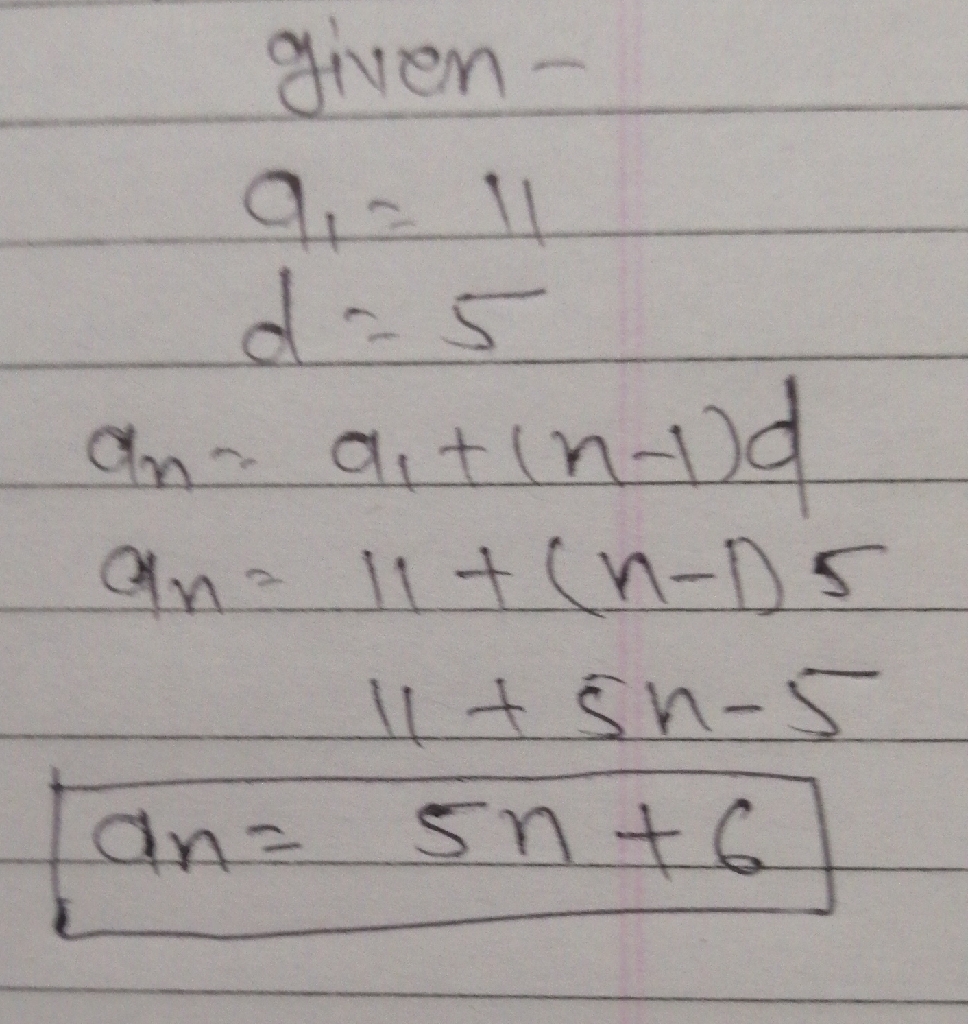 given -
a₁ = 11
d = 5
an = a₁ + (n-1)d
an = 11 + (n-1) 5
11 + 5n - 5
an = 5n + 6